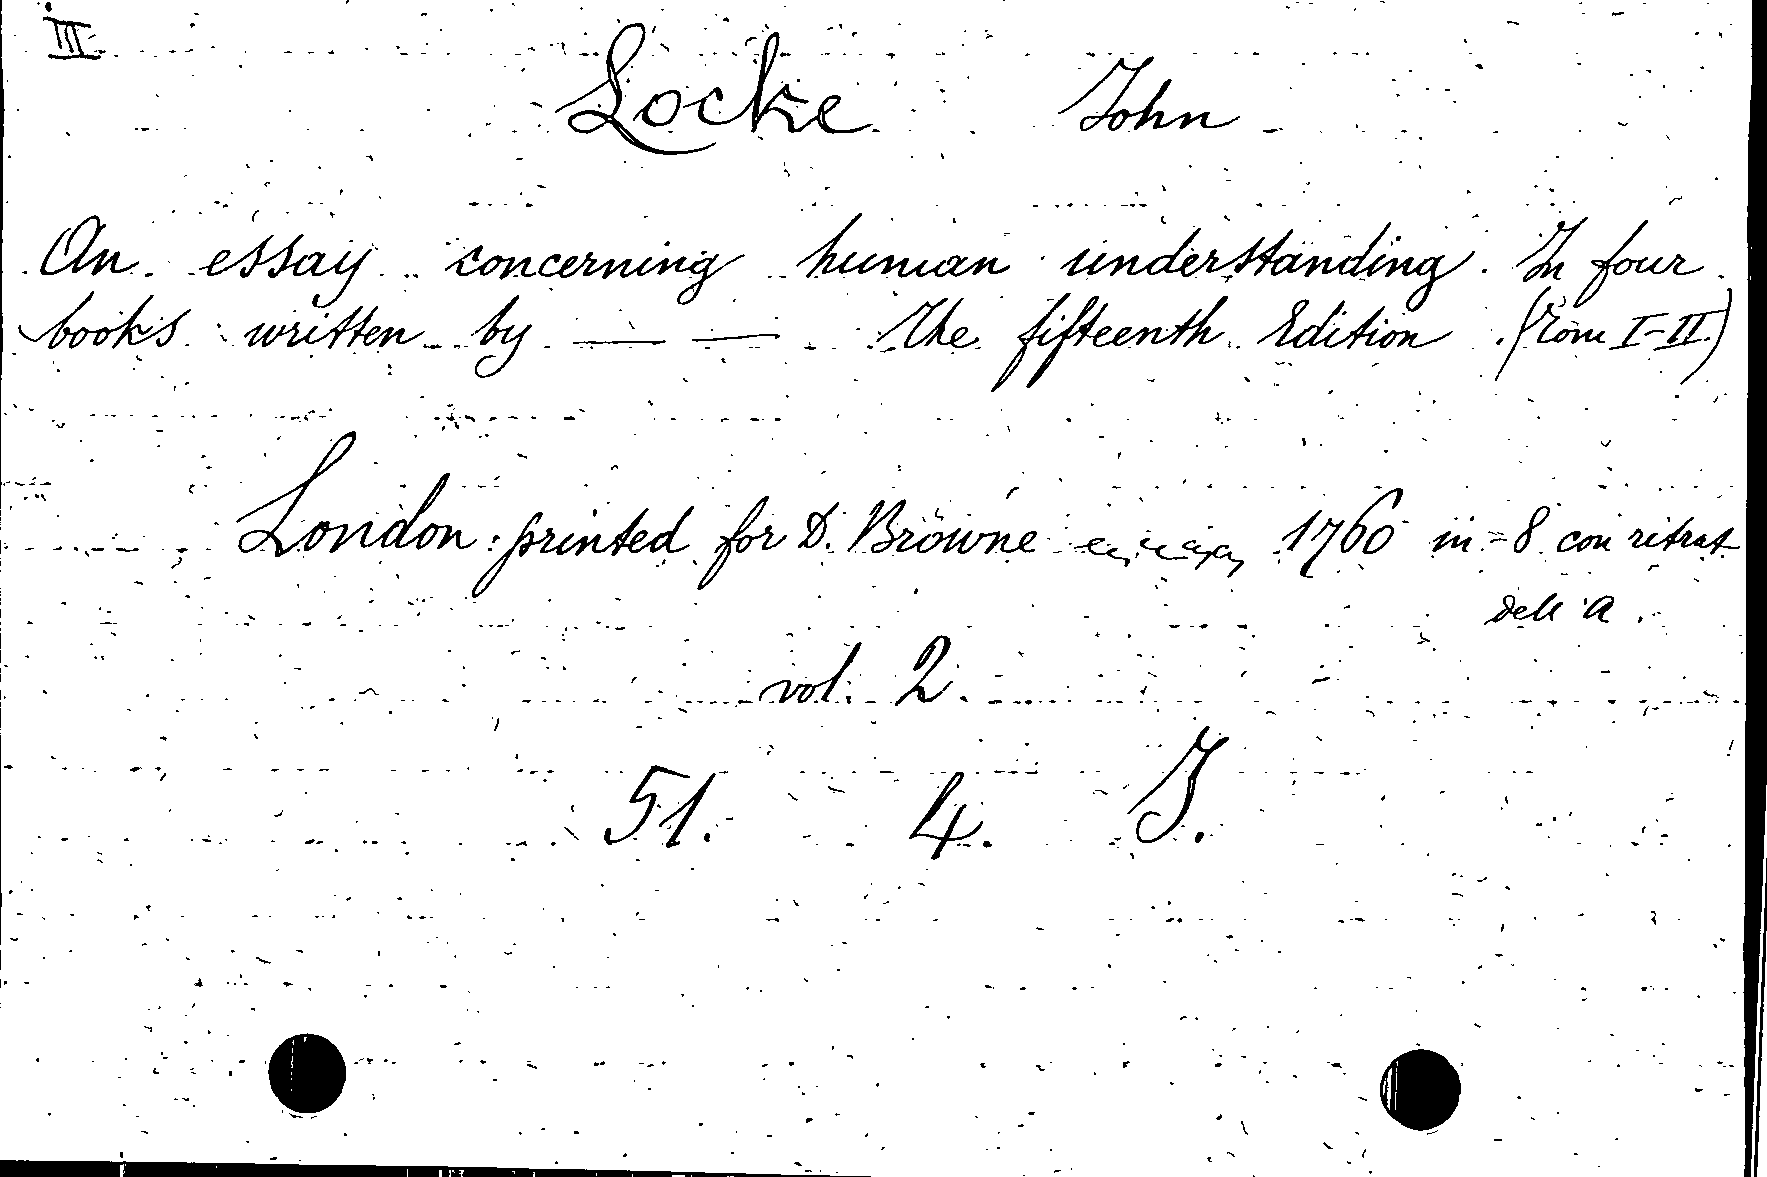 III
Locke John
An essay concerning human understanding. In four
books written by — — The fifteenth Edition. (Tom I-II.)
London: printed for D. Browne 1760 in-8 con ritrat
dell'A.
vol. 2.
51. 4. J.